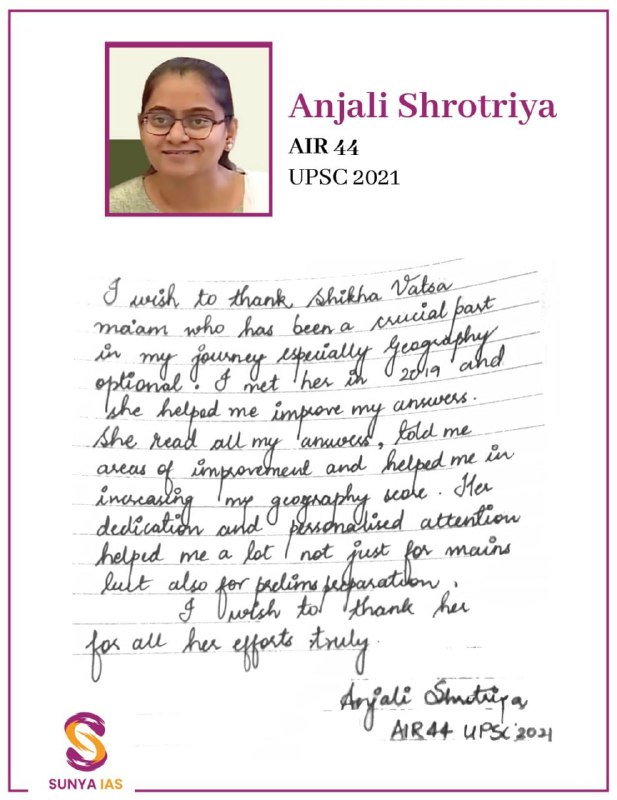 Anjali Shrotriya
AIR 44
UPSC 2021
I wish to thank Shikha Vatsa
ma'am who has been a crucial part
in my journey especially Geography
optional. I met her in 2019 and
she helped me improve my answers.
She read all my answers, told me
areas of improvement and helped me in
increasing my geography score. Her
dedication and personalised attention
helped me a lot not just for mains
but also for prelims preparation.
I wish to thank her
for all her efforts truly.
Anjali Shrotriya
AIR 44 UPSC 2021
SUNYA IAS